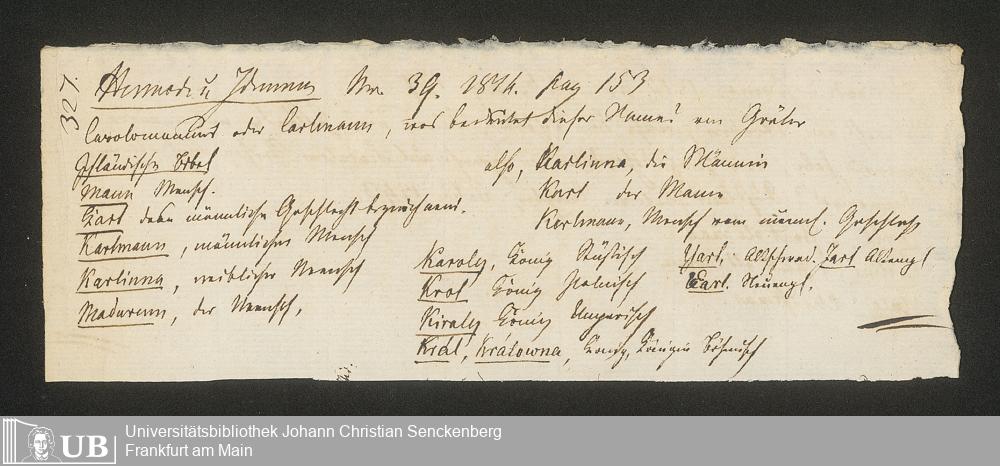 327.
Hermode u Idunna Nr. 39. 1814. pag 153
Carolomannus oder Carlmann, was bedeutet dieser Name? von Gräter
Isländische Bibel
Mann Mensch.
Karl den männliche Geschlecht bezeichnend.
Karlmann, männlicher Mensch
Karlinna, weiblicher Mensch
Madurenn, der Mensch.
also, Karlinna, die Männin
Karl der Mann
Karlmann, Mensch vom männl. Geschlecht
Karoly, König
Krol König Polnisch
Kiraly König Ungarisch
Král, Králowna, König, Königin Böhmisch
Jarl, Altschwed. Jarl Altengl
Earl. Neuengl.
UB
Universitätsbibliothek Johann Christian Senckenberg
Frankfurt am Main